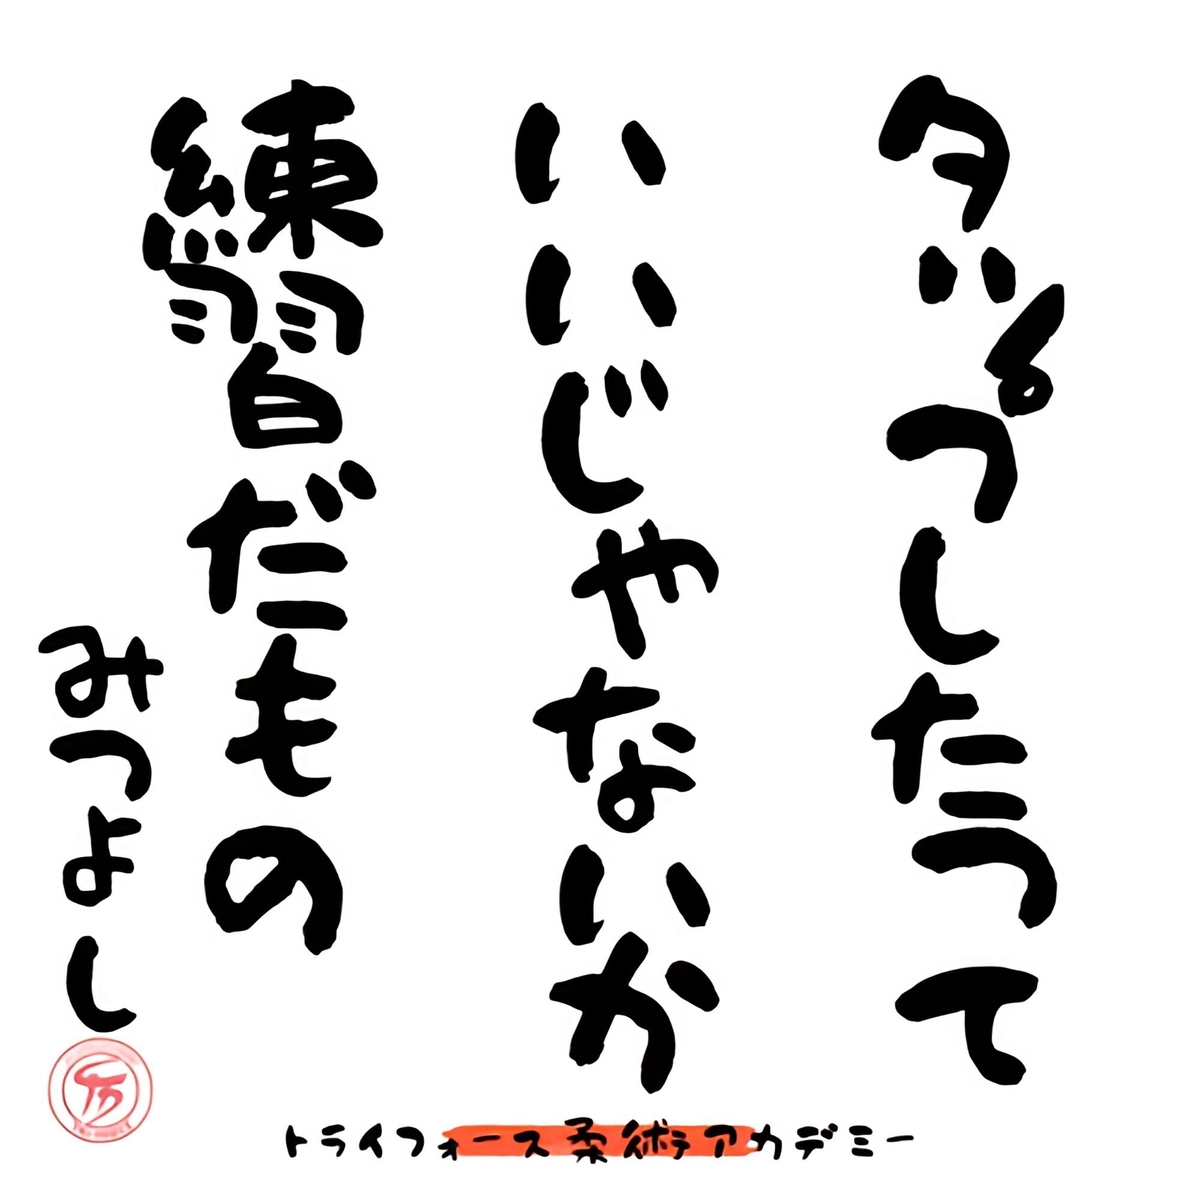 タップしたって
いいじゃないか
練習だもの
みつよし
トライフォース柔術アカデミー